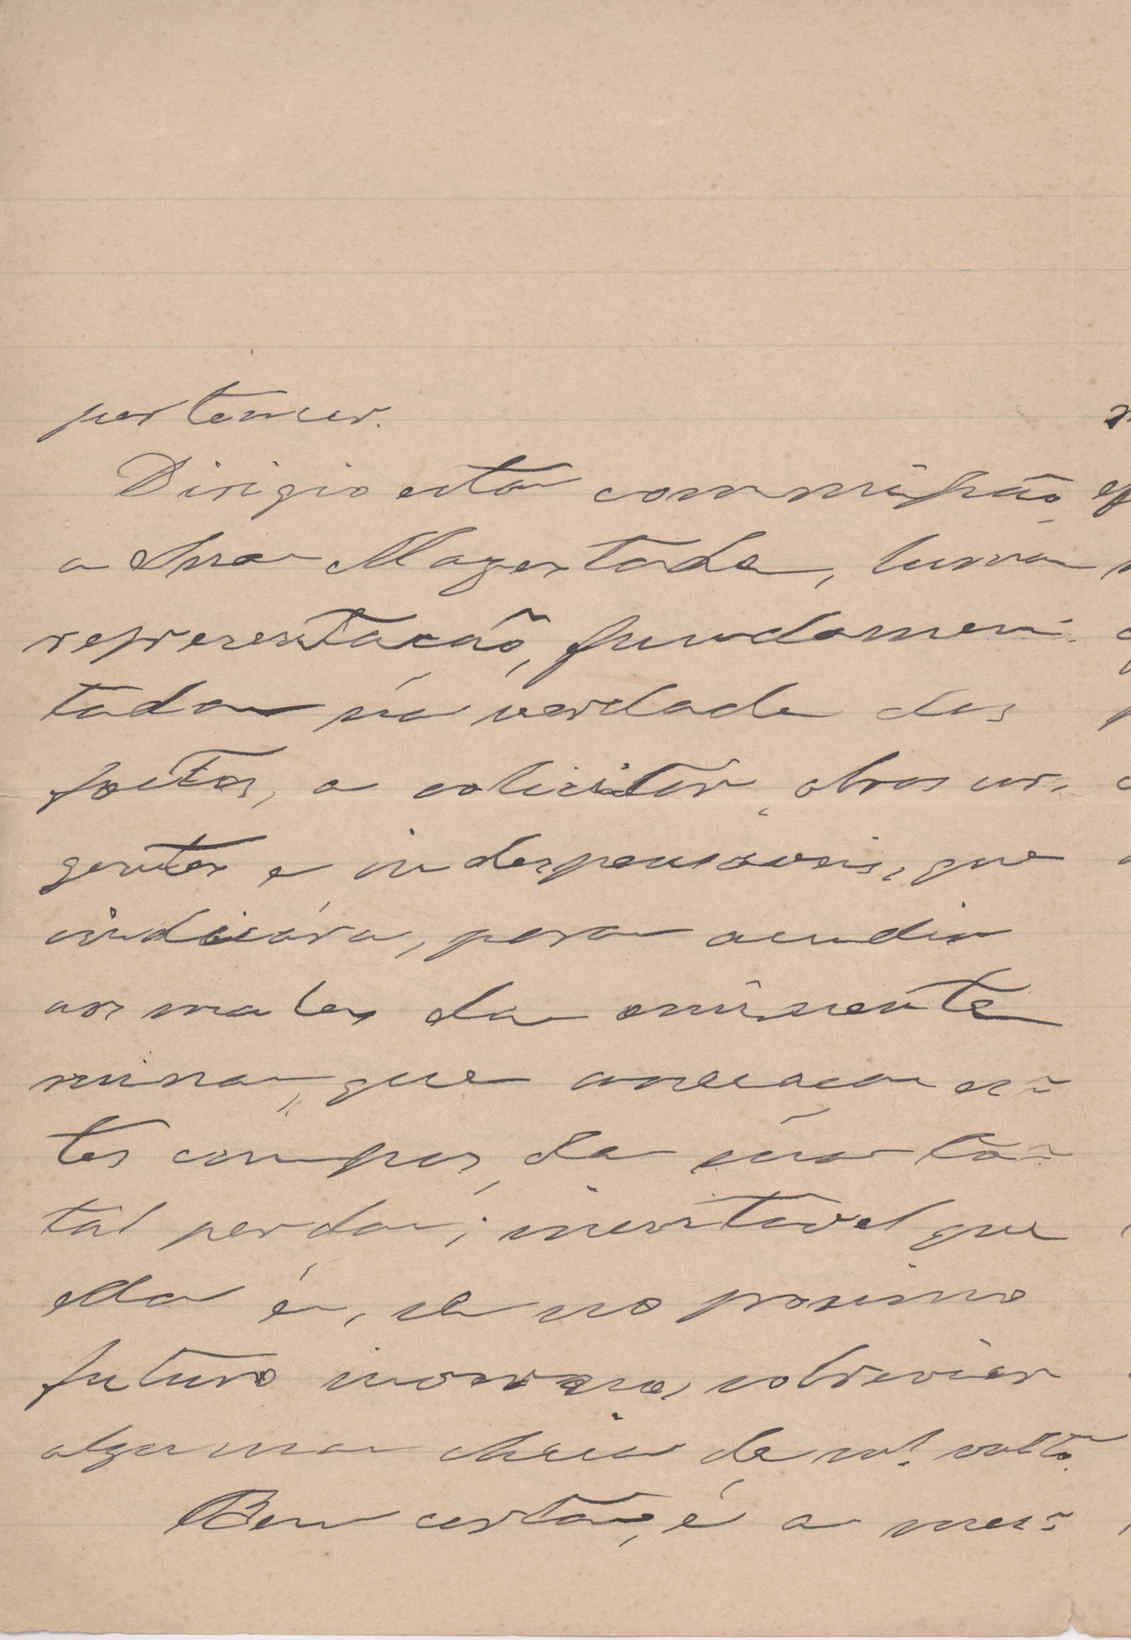 pertencer.
Dirigio esta commissão
a Sua Magestade, huma
representação, fundamen-
tada na verdade dos
factos, a solicitar obras ur-
gentes e indespensaveis, que
indicára, para acudir
aos males da eminente
ruina, que ameaça es-
tes campos, de sua to-
tal perda; inevitavel que
ella é, se no prosimo
futuro inverno, sobrevier
alguma cheia de vulto.
Bem certa, é a mes-